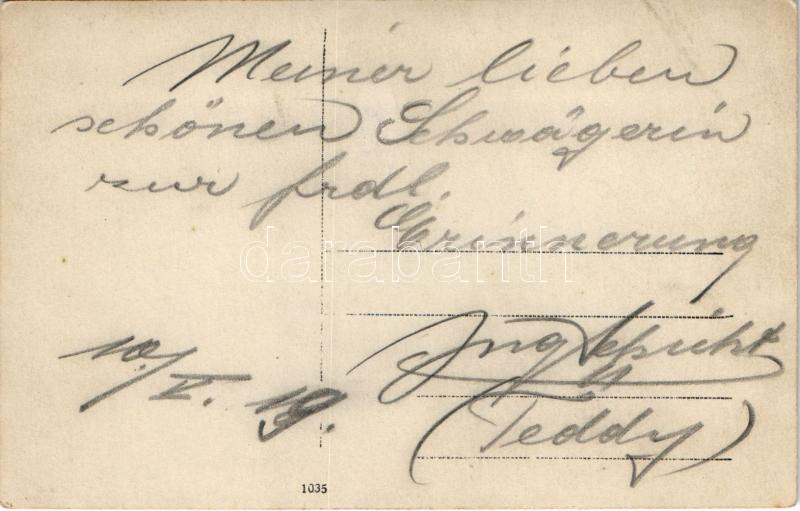 Meiner lieben
schönen Schwägerin
zur frdl.
Erinnerung
darabanth
10./V. 19.
Ing
(Teddy)
1035